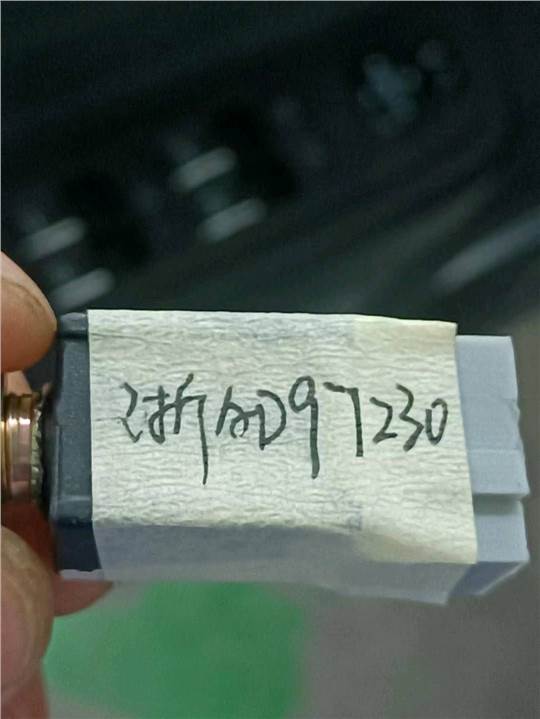 浙AD97230